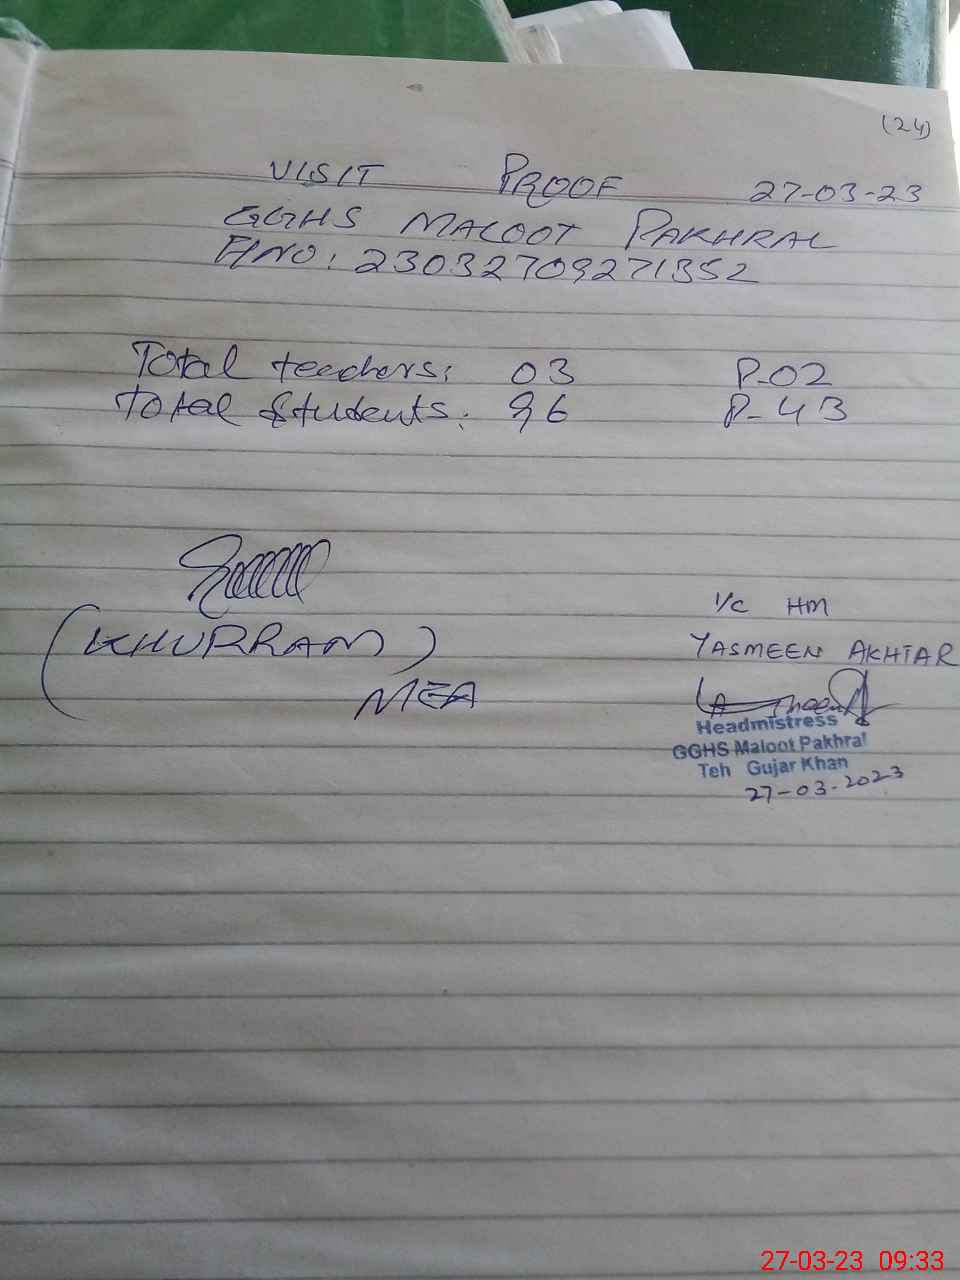 (24)
VISIT PROOF 27-03-23
GGHS MALOOT PAKHRAL
23032709271352
Total teachers: 03 P-02
Total Students: 96 P-43
(KHURRAM)
MEA
I/C HM
YASMEEN AKHTAR
Headmistress
GGHS Maloot Pakhral
Teh Gujar Khan
27-03-2023
27-03-23 09:33